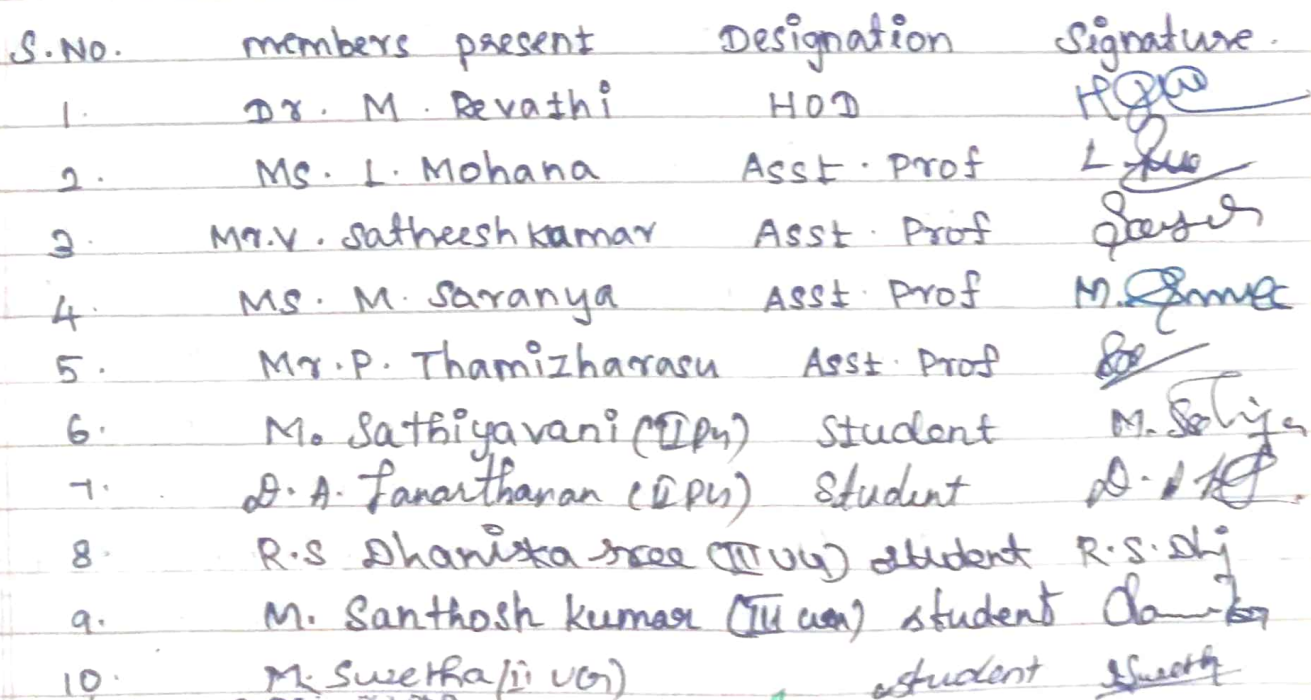 S.No. members present Designation Signature.
1. Dr. M. Revathi HOD
2. Ms. L. Mohana Asst. Prof L
3. Mr.V. Satheesh kamar Asst. Prof
4. Ms. M. Saranya Asst. Prof M.
5. Mr.P. Thamizharasu Asst. Prof
6. M. Sathiyavani (II PG) Student M. Sathiya
7. D.A. Janarthanan (II PG) Student D.A
8. R.S Dhaniska sree (III UG) student R.S.Dhj
9. M. Santhosh kumar (III UG) student
10. M. Swetha (ii UG) student Swetha